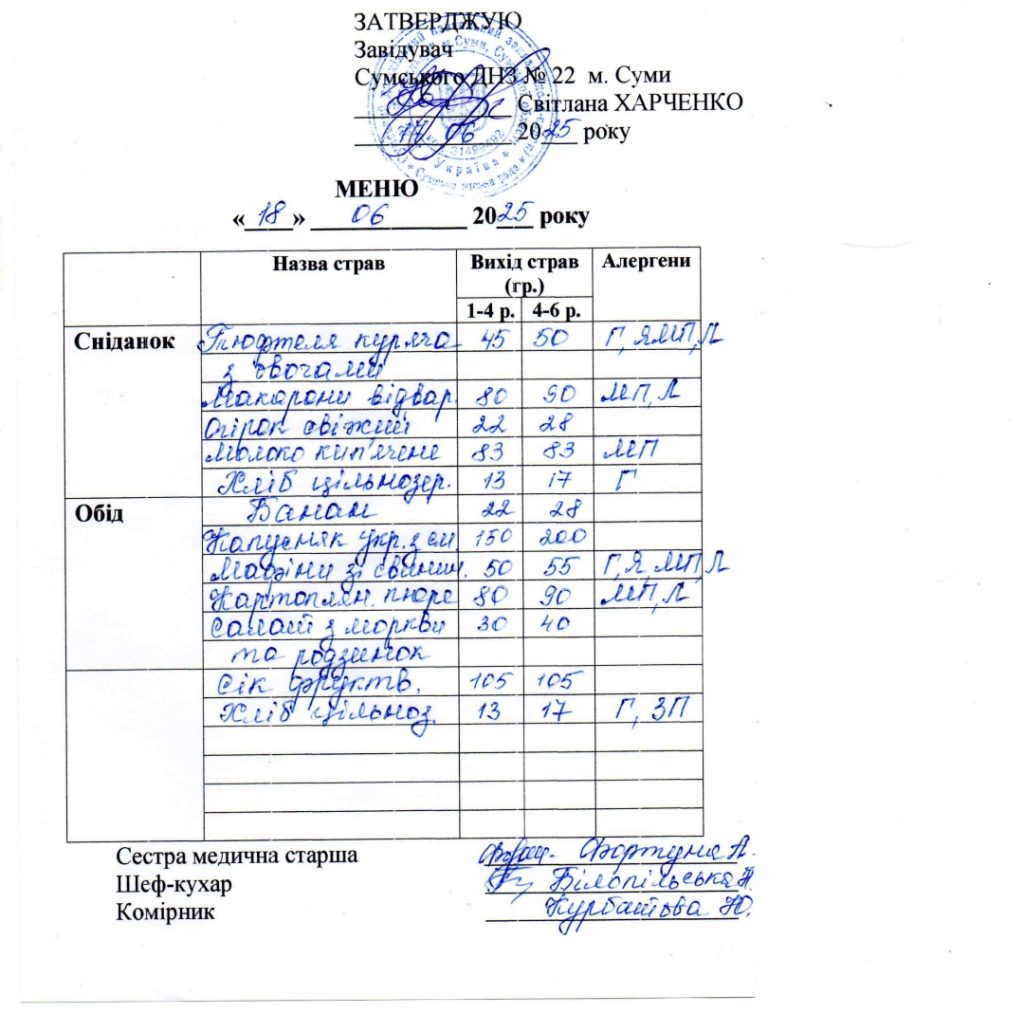 ЗАТВЕРДЖУЮ
Завідувач
Сумського ДНЗ № 22 м. Суми
Світлана ХАРЧЕНКО
17 06 2025 року
МЕНЮ
« 18 » 06 2025 року
Назва страв Вихід страв (гр.) Алергени
1-4 р. 4-6 р.
Сніданок Тюфтеля куряча 45 50 Г, ЯМП, Л
з овочами
Макарони відвар. 80 90 МП, Л
Огірок свіжий 22 28
Молоко кип'ячене 83 83 МП
Хліб цільнозер. 13 17 Г
Обід Банан 22 28
Капусняк укр. з см. 150 200
Мафіни зі свинин. 50 55 Г, Я, МП, Л
Картоплян. пюре 80 90 МП, Л
Салат з моркви 30 40
та родзинок
Сік фруктв. 105 105
Хліб цільноз. 13 17 Г, ЗП
Сестра медична старша Фортуна А.
Шеф-кухар Білопільська Н.
Комірник Курбатова Ю.